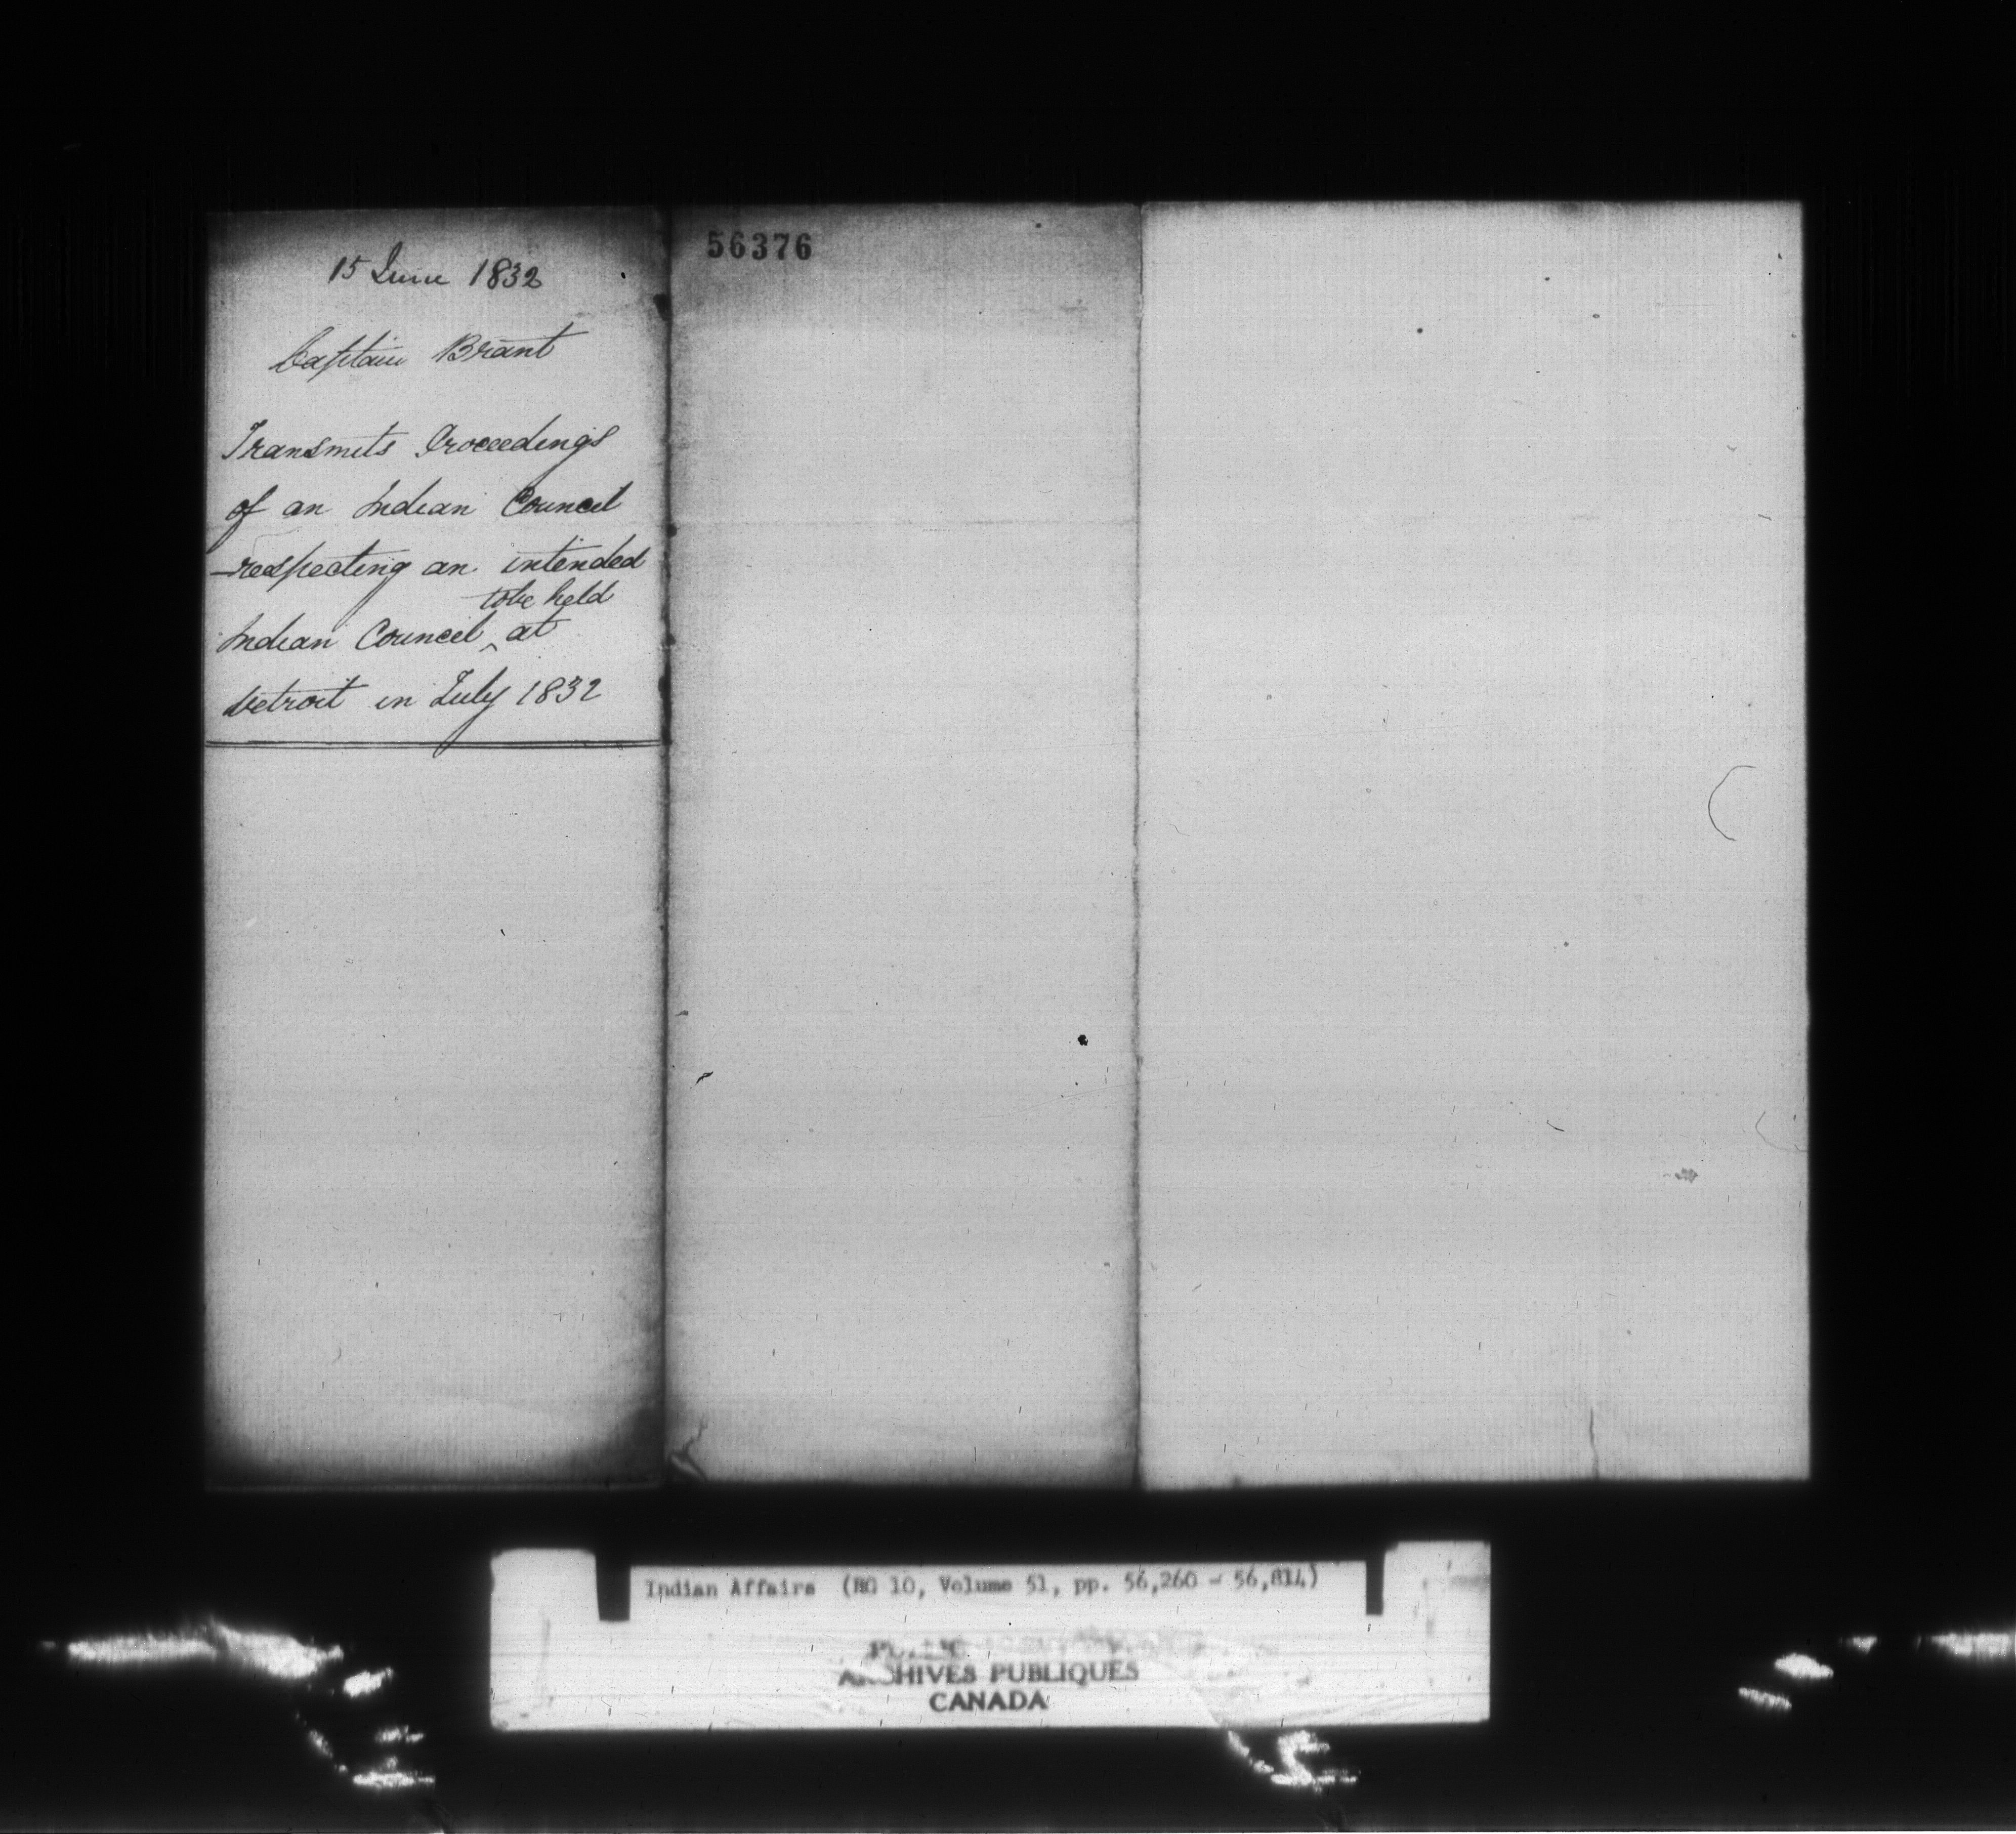 15 June 1832
Captain Brant
Transmits Proceedings
of an Indian Council
respecting an intended
to be held
Indian Council ^ at
Detroit in July 1832
56376
Indian Affairs (RG 10, Volume 51, pp. 56,260 - 56,814)
ARCHIVES PUBLIQUES
CANADA